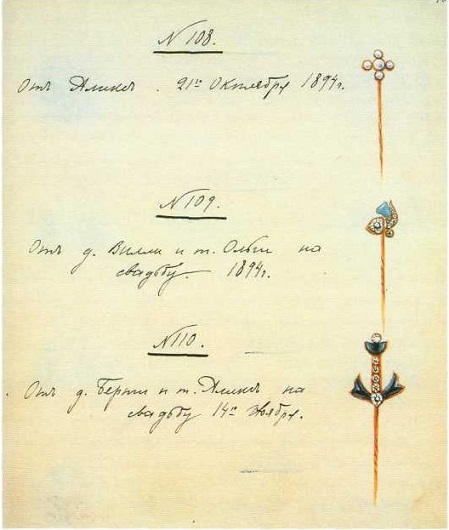 N 108.
Отъ Аликсъ. 21го Октября 1894 г.
N 109.
Отъ д. Вилли и т. Ольги на
свадьбу. 1894 г.
N 110.
Отъ д. Берти и т. Аликсъ на
свадьбу 14го ноября.